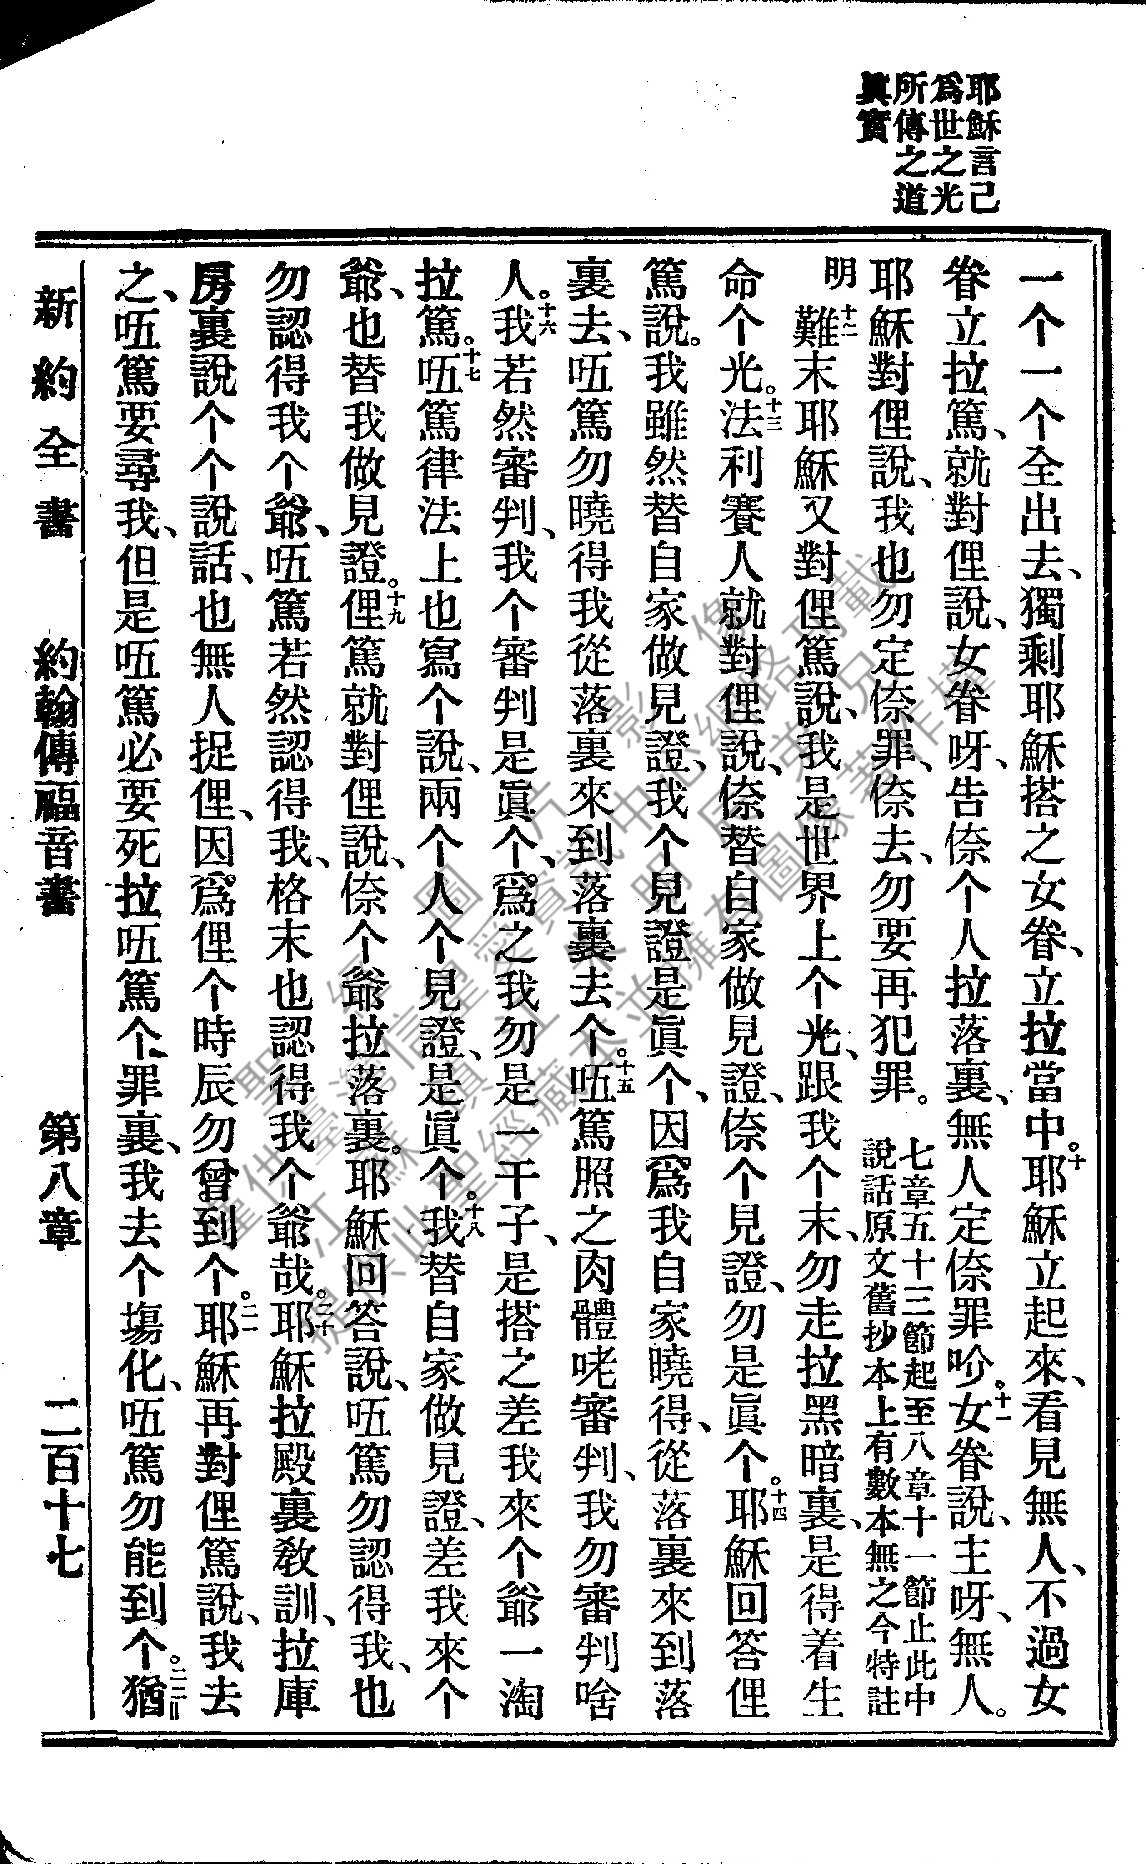 耶穌言己
爲世之光
所傳之道
眞實
一个一个全出去、獨剩耶穌搭之女眷、立拉當中。十耶穌立起來、看見無人、不過女
眷立拉篤、就對俚說、女眷呀、告㑚个人拉落裏、無人定㑚罪吤。十一女眷說、主呀、無人。
耶穌對俚說、我也勿定㑚罪、㑚去、勿要再犯罪。
七章五十三節起至八章十一節止此中
說話原文舊抄本上有數本無之今特註
明
十二難末耶穌又對俚篤說、我是世界上个光、跟我个末、勿走拉黑暗裏、是得着生
命个光。十三法利賽人就對俚說、㑚替自家做見證、㑚个見證、勿是眞个。十四耶穌回答俚
篤說。我雖然替自家做見證、我个見證是眞个、因爲我自家曉得、從落裏來到落
裏去、㕶篤勿曉得我從落裏來到落裏去个。十五㕶篤照之肉體咾審判、我勿審判啥
人。十六我若然審判、我个審判是眞个、爲之我勿是一干子、是搭之差我來个爺一淘
拉篤。十七㕶篤律法上也寫个說、兩个人个見證、是眞个。十八我替自家做見證、差我來个
爺、也替我做見證。十九俚篤就對俚說、㑚个爺拉落裏。耶穌回答說、㕶篤勿認得我、也
勿認得我个爺、㕶篤若然認得我、格末也認得我个爺哉。二十耶穌拉殿裏教訓、拉庫
房裏說个个說話、也無人捉俚、因爲俚个時辰勿曾到个。二一耶穌再對俚篤說、我去
之、㕶篤要尋我、但是㕶篤必要死拉㕶篤个罪裏、我去个場化、㕶篤勿能到个。二二猶
新約全書　約翰傳福音書　第八章　二百十七
聖經圖片影像
僅供臺灣信望愛資訊中心網路刊載
江蘇鎮江朱明周英兄
提供此聖經藏本並擁有圖像著作權